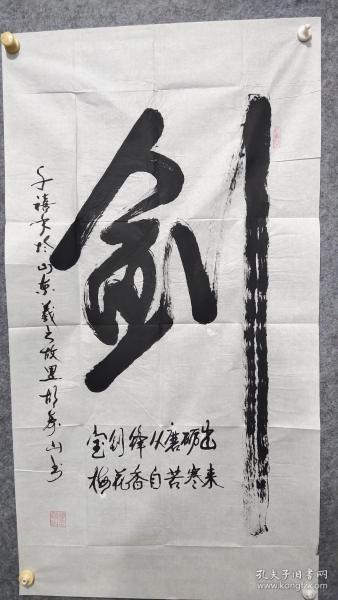 剑
宝剑锋从磨砺出
梅花香自苦寒来
千禧年于山东羲之故里胡秀山书
孔夫子旧书网
www.kongfz.com